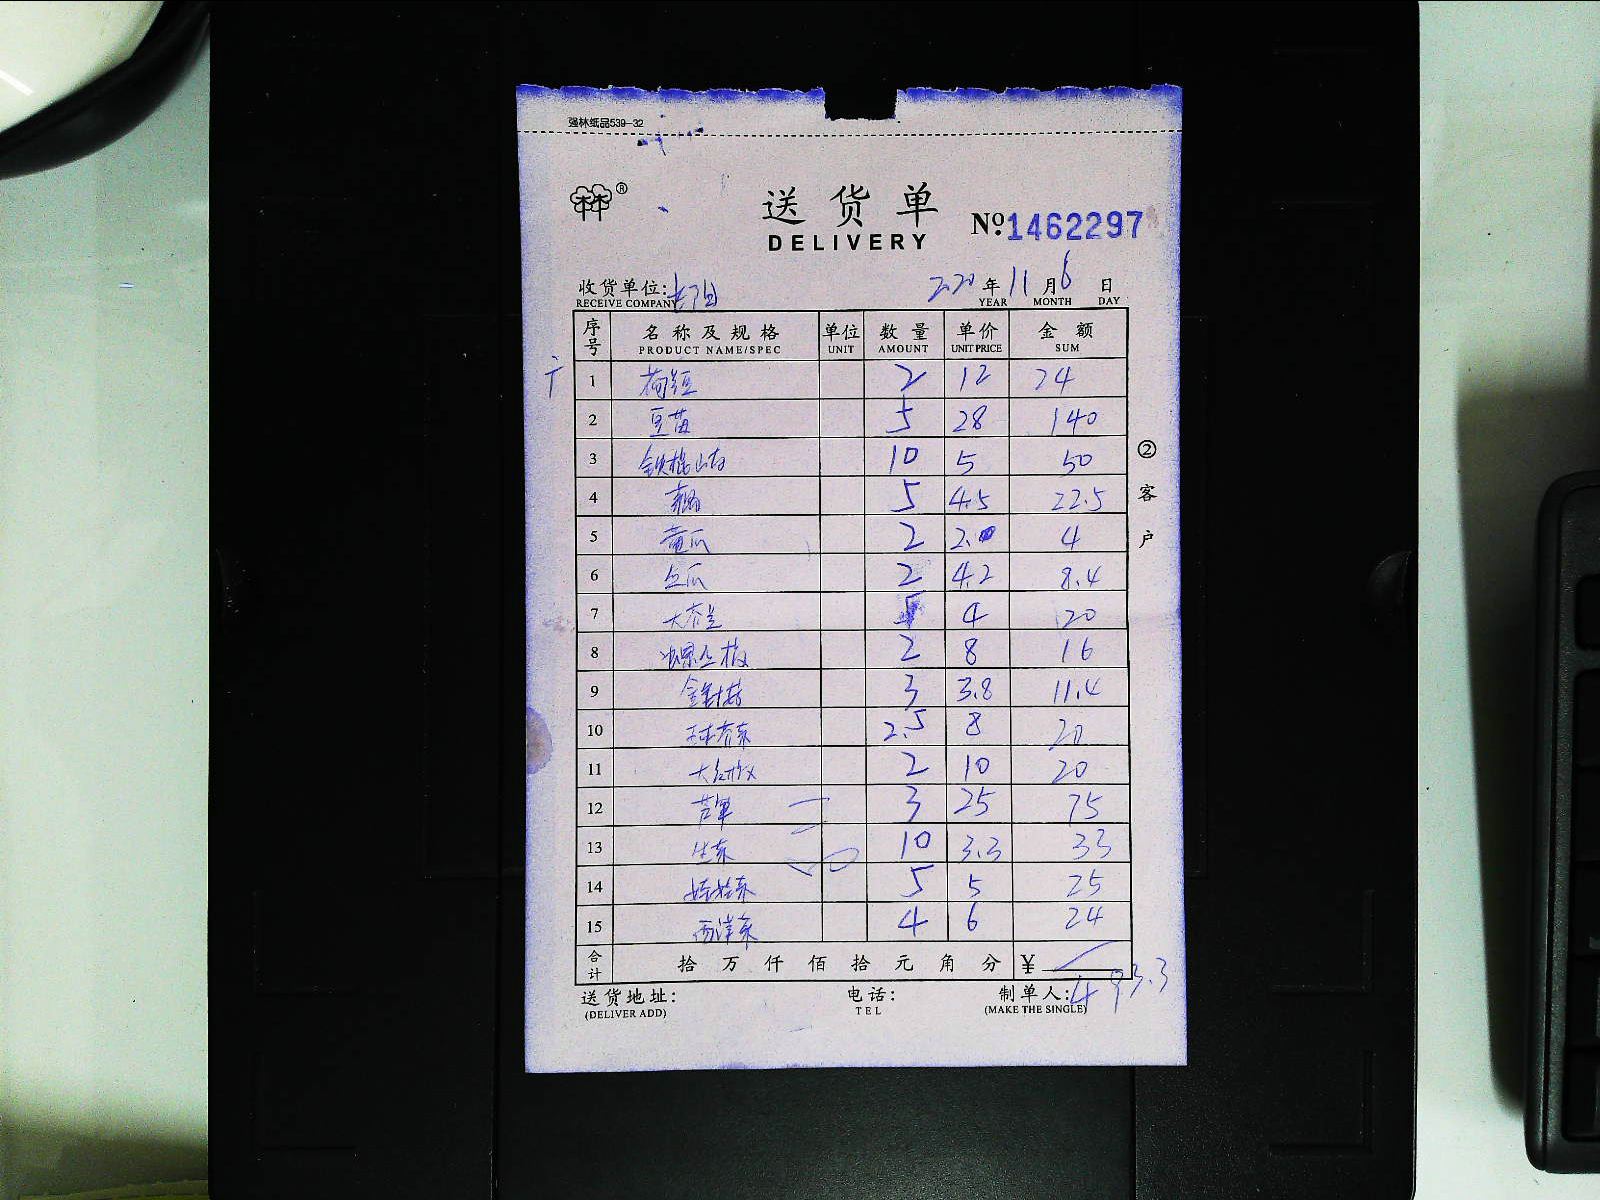 强林纸品539-32
送货单
DELIVERY
№1462297
收货单位: 2020年11月6日
RECEIVE COMPANY YEAR MONTH DAY
序号 名称及规格 单位 数量 单价 金额
PRODUCT NAME/SPEC UNIT AMOUNT UNIT PRICE SUM
1 荷豆 2 12 24
2 豆苗 5 28 140
3 铁棍山药 10 5 50
4 5 4.5 22.5
5 黄瓜 2 2.0 4
6 丝瓜 2 4.2 8.4
7 大芥兰 5 4 20
8 2 8 16
9 金针菇 3 3.8 11.4
10 2.5 8 20
11 大红椒 2 10 20
12 芦笋 3 25 75
13 生菜 10 3.3 33
14 娃娃菜 5 5 25
15 西洋菜 4 6 24
②客户
合计 拾万仟佰拾元角分 ¥ 493.3
送货地址: 电话: 制单人:
(DELIVER ADD) TEL (MAKE THE SINGLE)